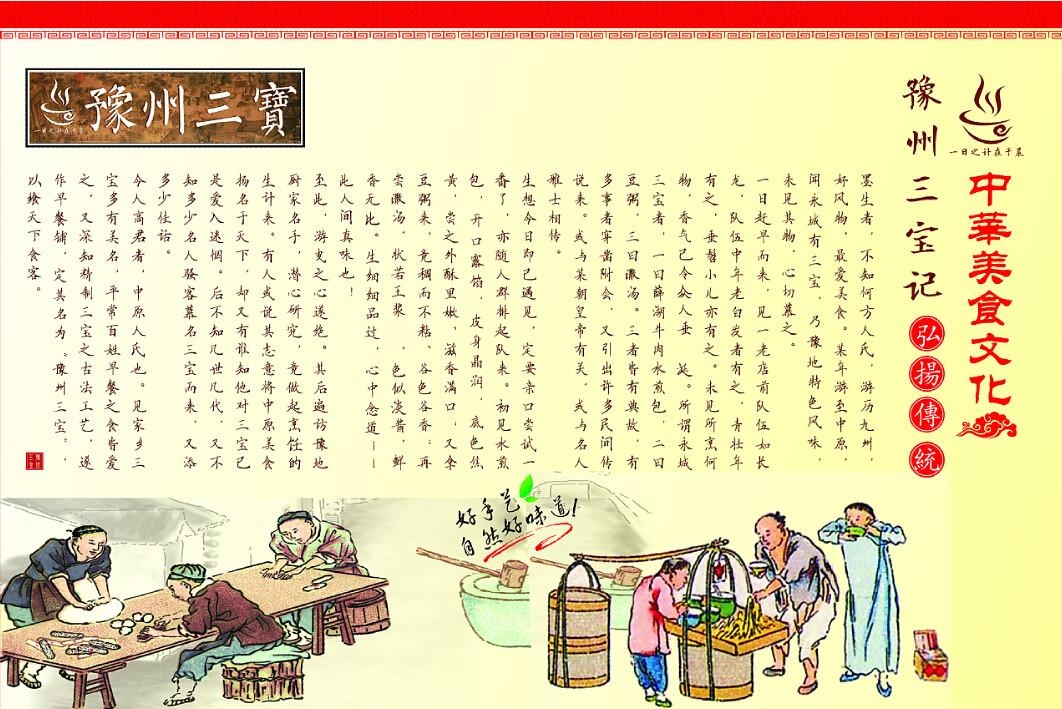 中華美食文化
一日之计在于晨
豫州三宝记
弘揚傳統
豫州三寶
一日之计在于晨
墨生者，不知何方人氏，游历九州，
好风物，最爱美食。某年游至中原，
闻永城有三宝，乃豫地特色风味，
未见其物，心切慕之。
一日赶早而来，见一老店前队伍如长
龙，队伍中年老白发者有之，青壮年
有之，垂髫小儿亦有之。未见所烹何
物，香气已令众人垂 涎。所谓永城
三宝者，一曰薛湖牛肉水煎包，二曰
豆粥，三曰汤。三者皆有典故，有
多事者穿凿附会，又引出许多民间传
说来。或与某朝皇帝有关，或与名人
雅士相传。
生想今日即已遇见，定要亲口尝试一
番了，亦随人群排起队来。初见水煎
包，开口露馅，皮身晶润，底色焦
黄，尝之外酥里嫩、滋香满口；又
豆粥来，竟稠而不粘、谷色谷香；再
尝汤，状若玉浆、色似淡酱，鲜
香无比。生细细品过，心中念道——
此人间真味也！
至此，游之心遂绝。其后遍访豫地
厨家名手，潜心研究，竟做起烹饪的
生计来。有人或说其志意将中原美食
扬名于天下，却又有谁知他对三宝已
是爱入迷惘。后不知几世几代，又不
知多少名人骚客慕名三宝而来，又添
多少佳话。
今人高君者，中原人氏也。见家乡三
宝多有美名，平常百姓早餐之食皆爱
之，又深知精制三宝之古法工艺，遂
作早餐铺，定其名为“豫州三宝”，
以飨天下食客。
好手艺好味道！
自然